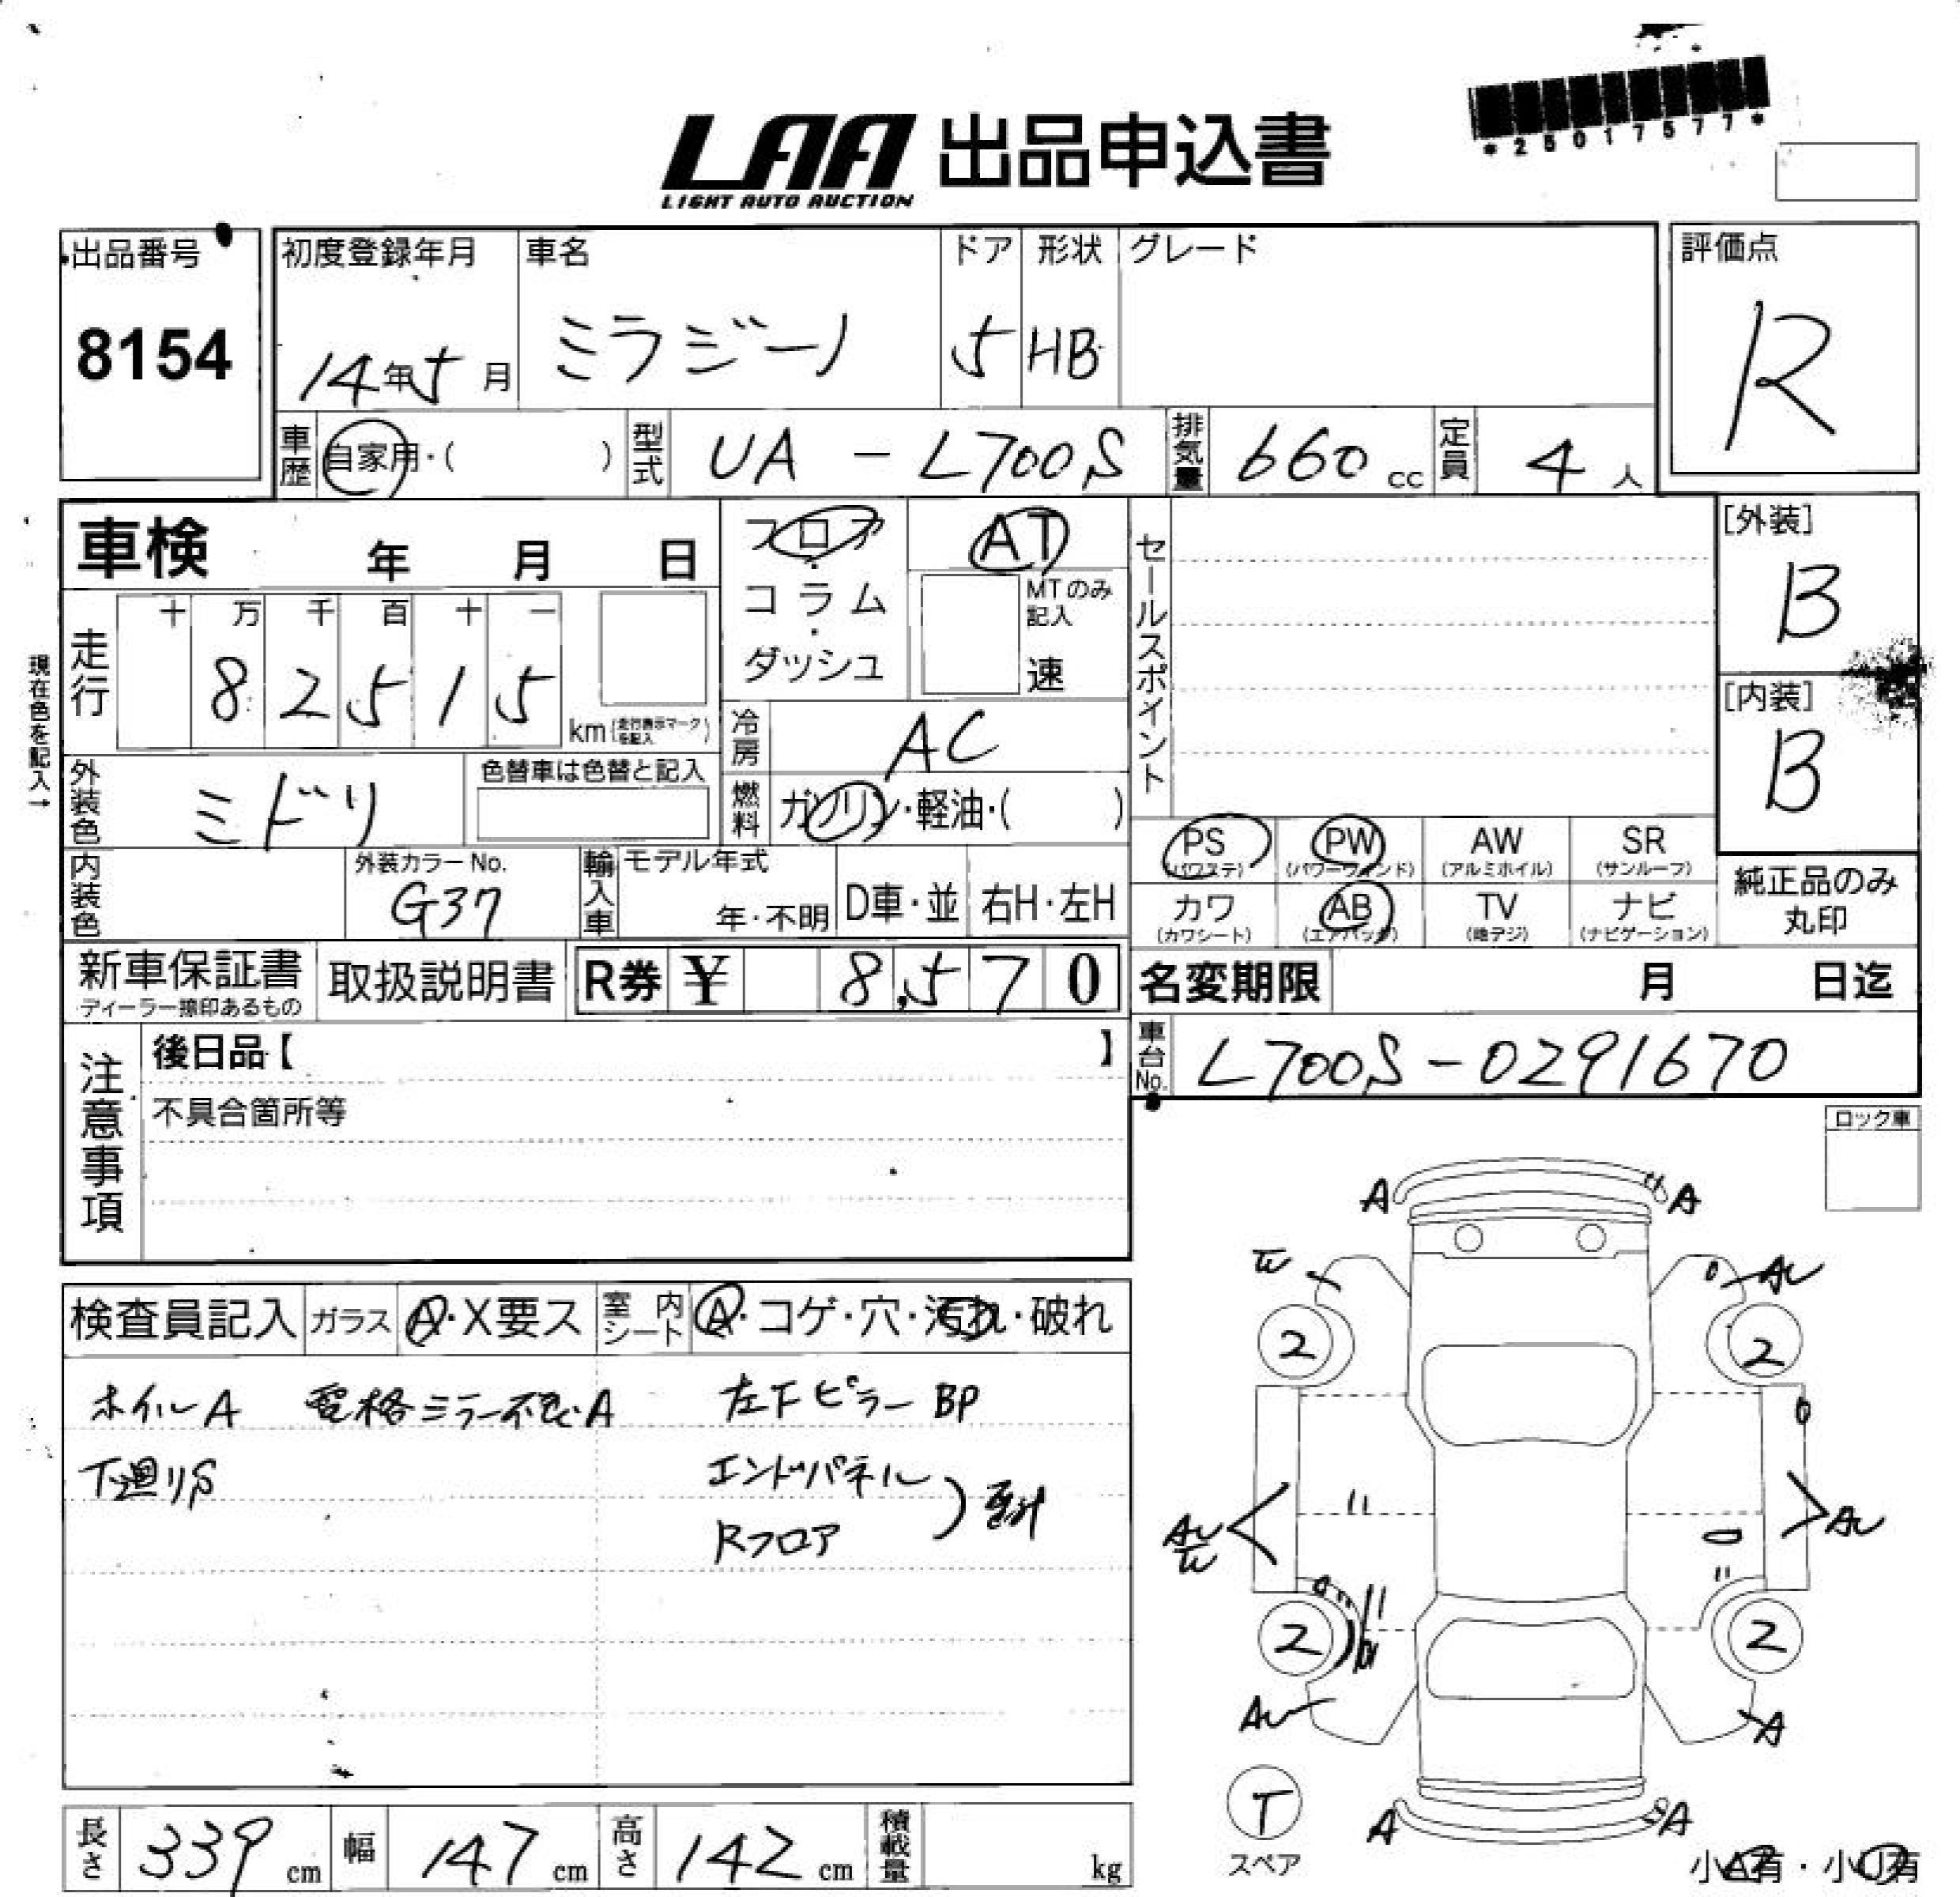 *25017577*
LAA 出品申込書
LIGHT AUTO AUCTION
出品番号 初度登録年月 車名 ドア 形状 グレード 評価点
8154 14年5月 ミラジーノ 5 HB R
車歴 自家用・( ) 型式 UA-L700S 排気量 660cc 定員 4人
車検 年 月 日 フロア・コラム・ダッシュ AT
MTのみ記入 速
セールスポイント
[外装]
B
[内装]
B
現在色を記入→
走行 十 万 千 百 十 一
8 2 5 1 5 km (走行表示マークを記入)
冷房 AC
外装色 ミドリ 色替車は色替と記入
燃料 ガソリン・軽油・( )
PS (パワステ) PW (パワーウィンド) AW (アルミホイル) SR (サンルーフ)
カワ (カワシート) AB (エアバッグ) TV (地デジ) ナビ (ナビゲーション)
純正品のみ
丸印
内装色 外装カラーNo. G37 輸入車 モデル年式 年・不明 D車・並 右H・左H
新車保証書 取扱説明書 R券 ¥ 8,570 名変期限 月 日迄
ディーラー捺印あるもの
注意事項 後日品【 】
車台No. L700S-0291670
不具合箇所等
ロック車
検査員記入 ガラス A・X要ス 室内シート A・コゲ・穴・汚れ・破れ
ホイルA 電格ミラー A 左Fピラー BP
下廻りS エンドパネル
Rフロア
A A
AU
2 2
AU AU
2 2
AU A
T
スペア
A A
小A有・小U有
長さ 339cm 幅 147cm 高さ 142cm 積載量 kg